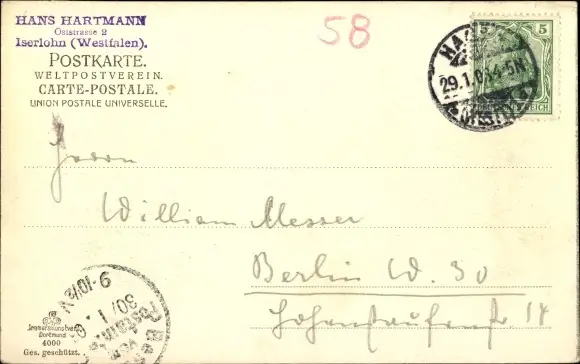 HANS HARTMANN
Oststrasse 2
Iserlohn (Westfalen).
58
POSTKARTE.
WELTPOSTVEREIN.
CARTE-POSTALE.
UNION POSTALE UNIVERSELLE.
5 5
29.1.0 4-5N
Herrn
William Messer
Berlin W. 30
Hohenstaufenstr 14
9-10½V
30/1
Dortmund
4000
Ges. geschützt.